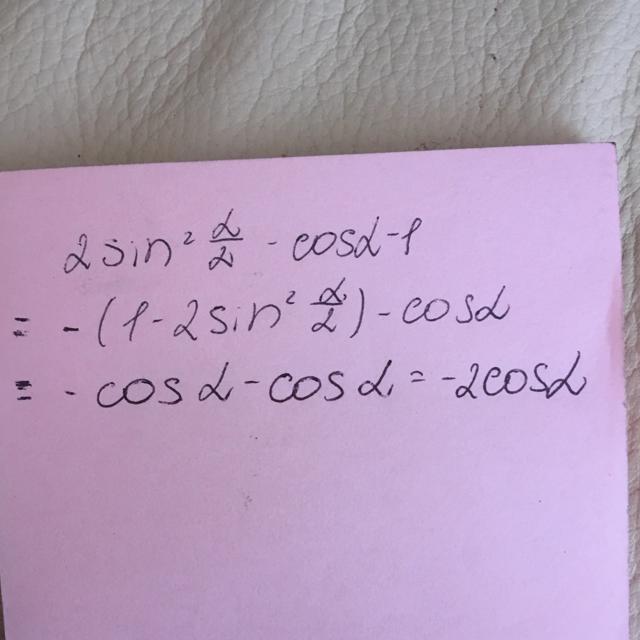 2 sin² α/2 - cosα - 1
= - (1 - 2 sin² α/2) - cosα
= - cos α - cos α = -2cosα